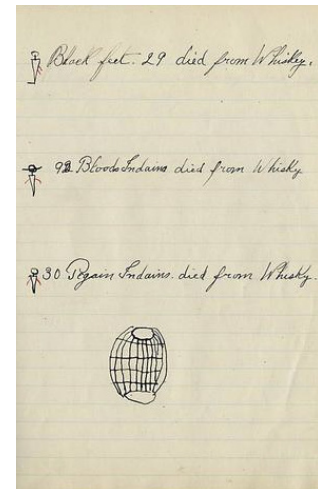 Black feet. 29 died from Whiskey.
92. Bloods Indains. died from Whisky
30. Pegain Indains. died from Whisky.